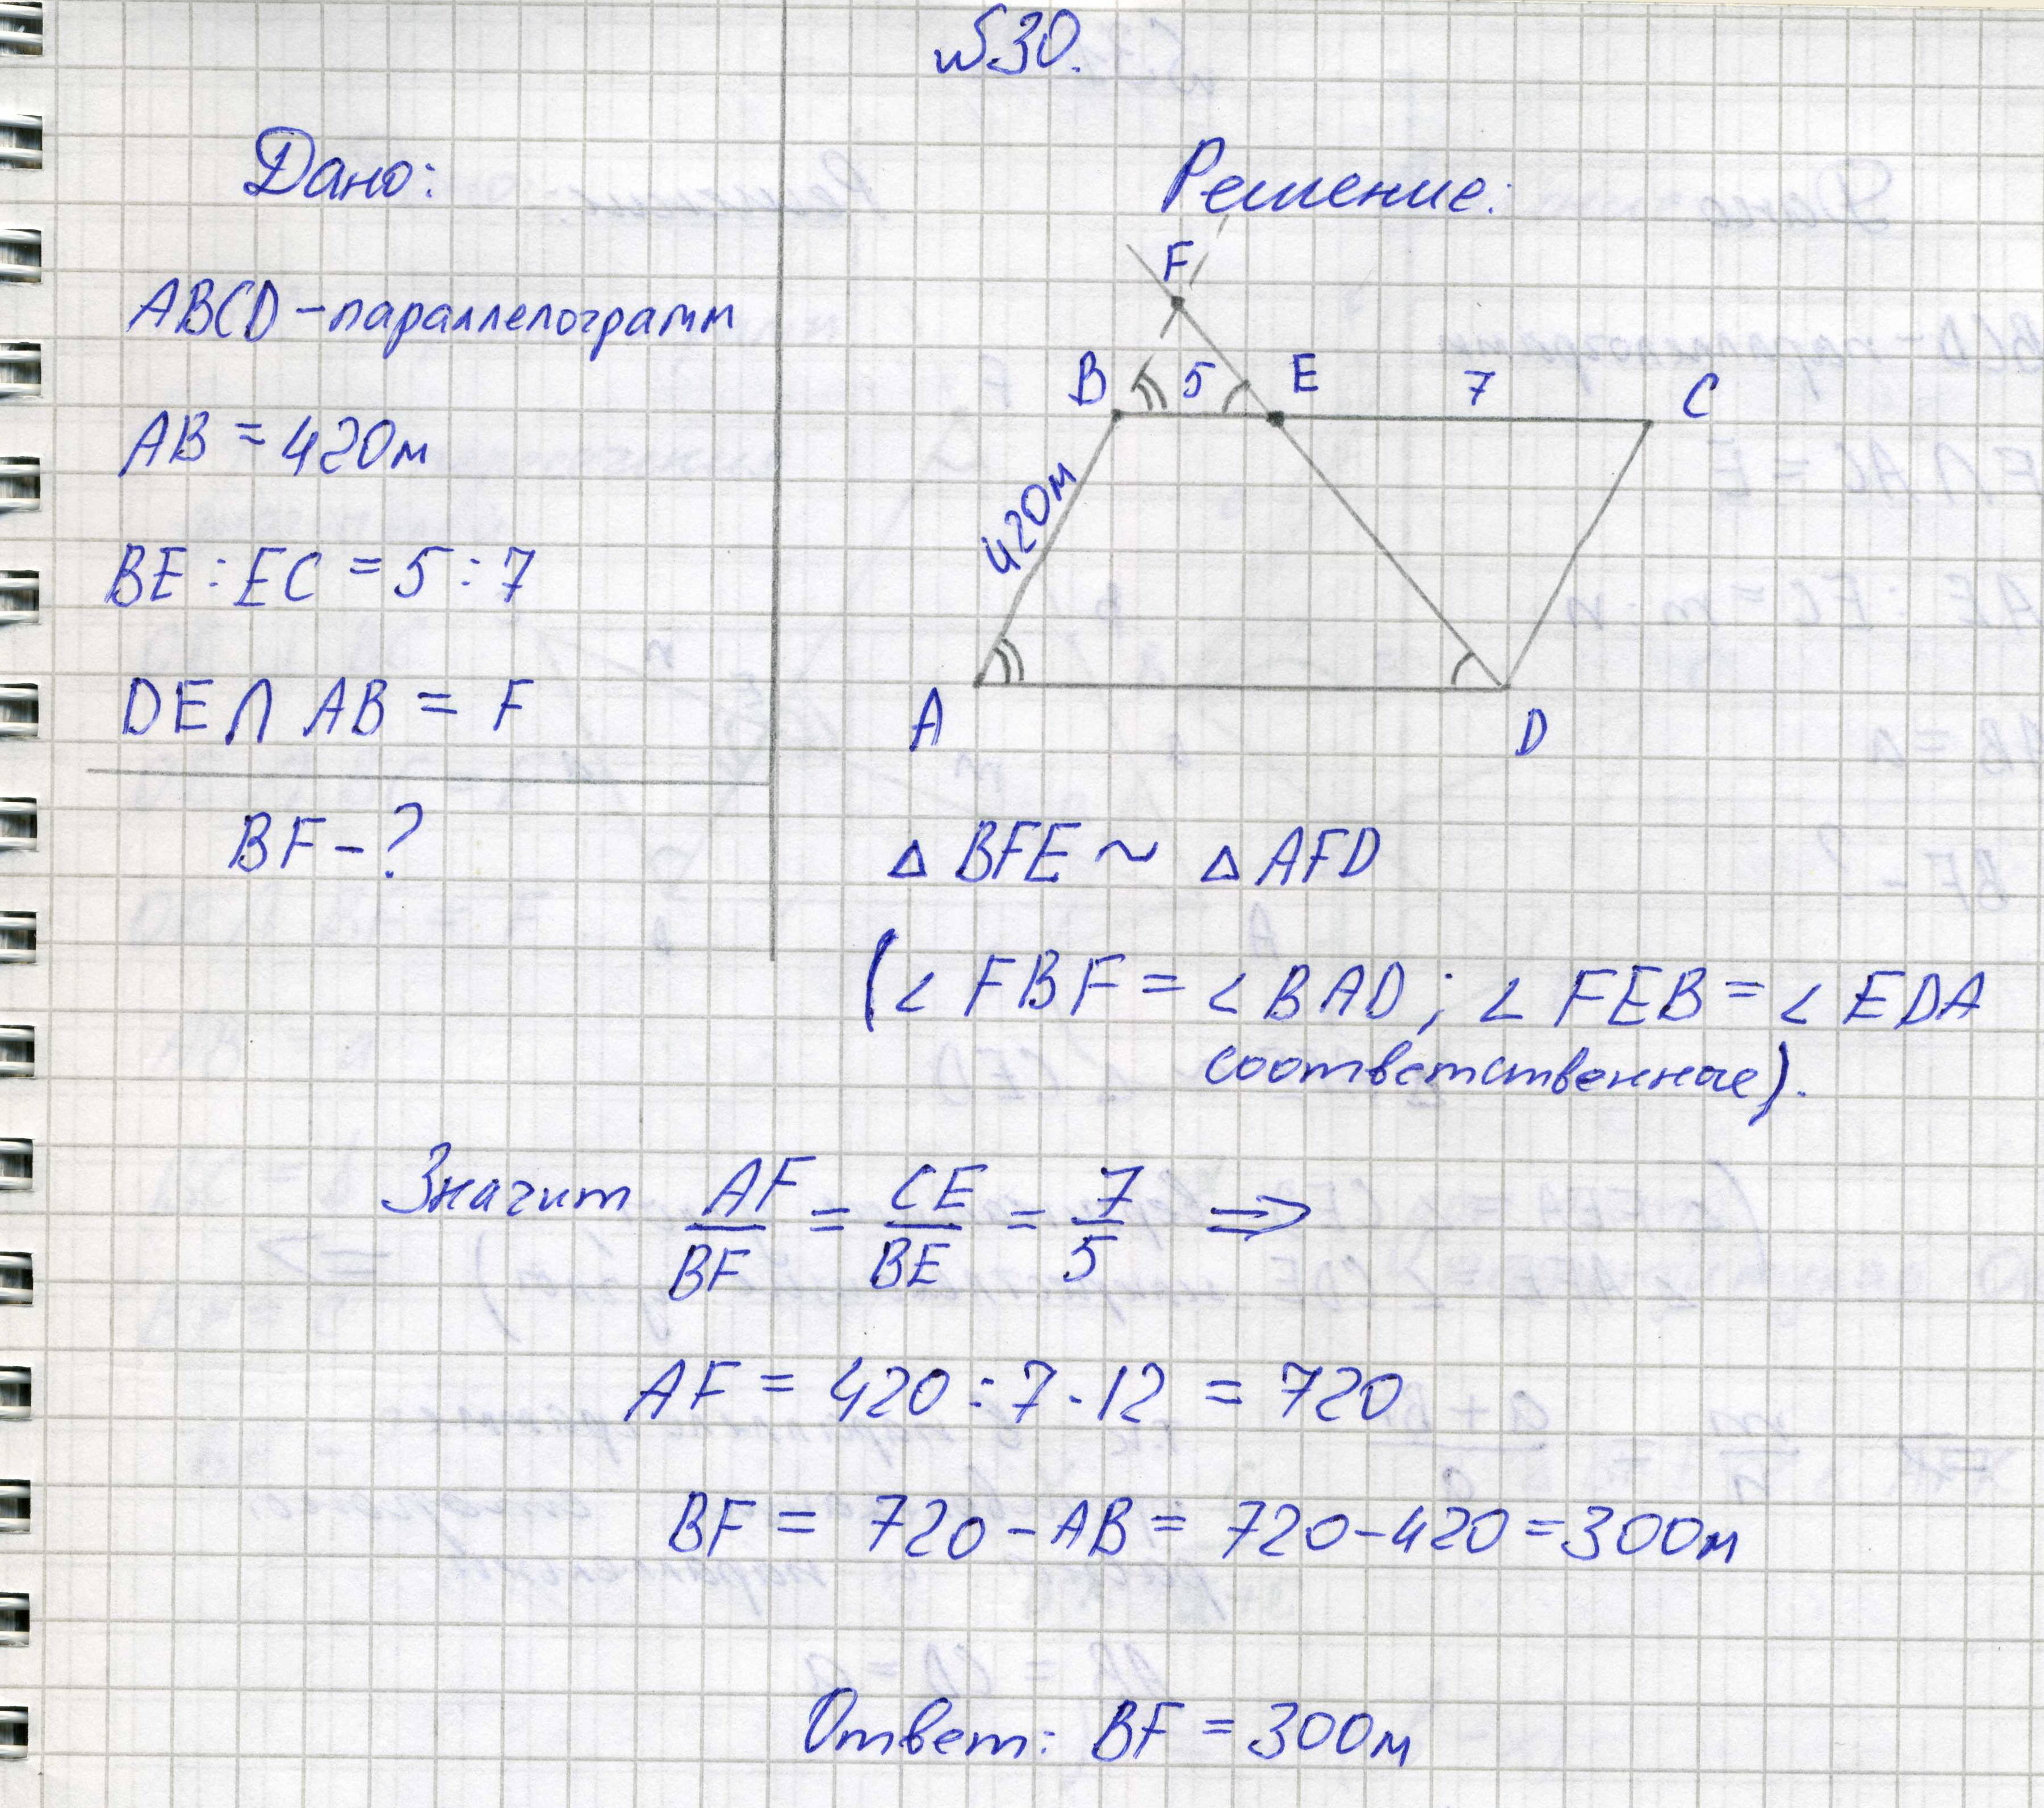 №30.
Дано:
ABCD - параллелограмм
AB = 420м
BE : EC = 5 : 7
DE ∩ AB = F
BF - ?
Решение:
F
B 5 E 7 C
420м
A D
△ BFE ~ △ AFD
(∠ FBF = ∠ BAD ; ∠ FEB = ∠ EDA
соответственные).
Значит AF/BF = CE/BE = 7/5 ⇒
AF = 420 : 7 · 12 = 720
BF = 720 - AB = 720 - 420 = 300м
Ответ: BF = 300м